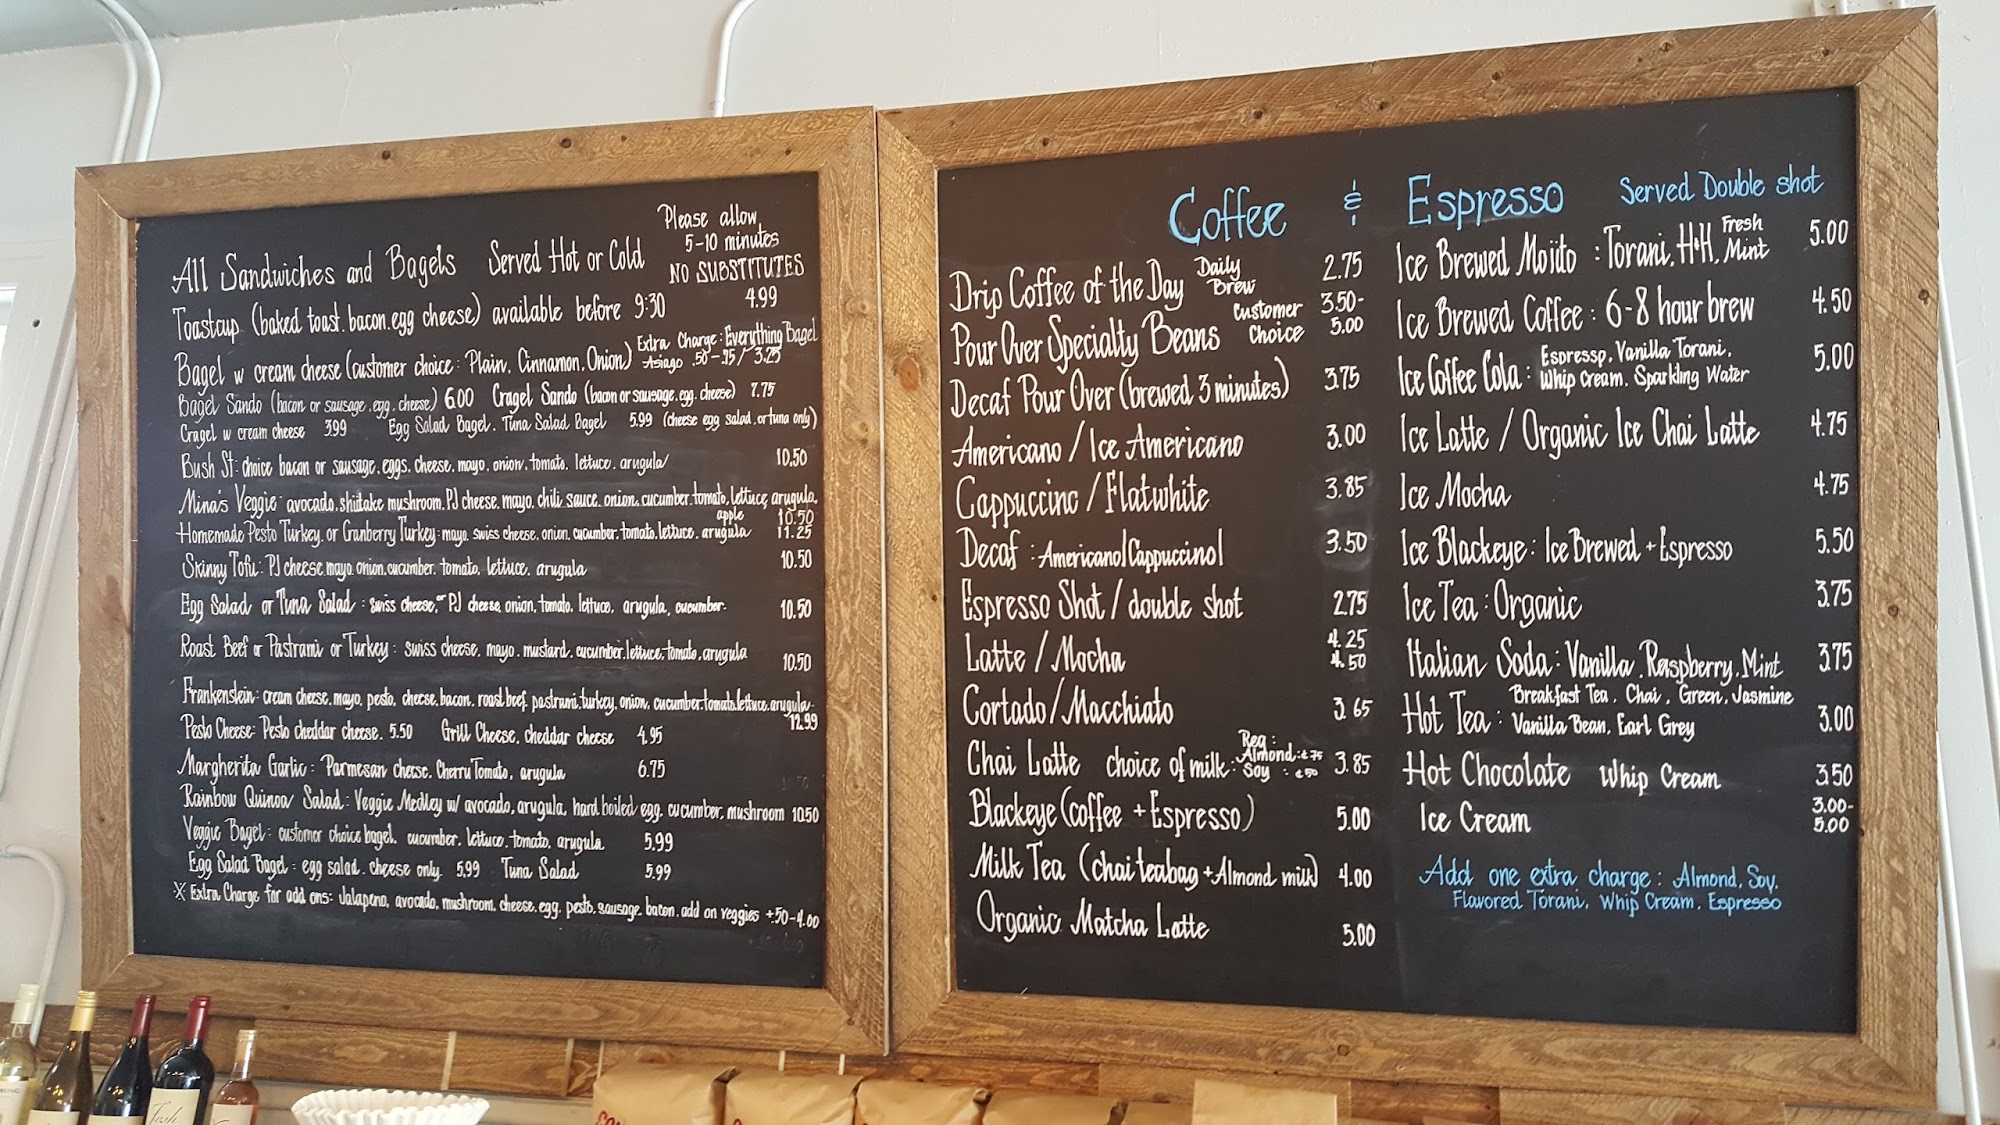 All Sandwiches and Bagels Served Hot or Cold
Please allow
5-10 minutes
NO SUBSTITUTES
Toastcup (baked toast. bacon. egg cheese) available before 9:30 4.99
Bagel w cream cheese (customer choice: Plain, Cinnamon, Onion) Extra Charge: Everything Bagel
Asiago .50-.75/ 3.25
Bagel Sando (bacon or sausage, egg, cheese) 6.00 Cragel Sando (bacon or sausage, egg, cheese) 7.75
Cragel w cream cheese 3.99 Egg Salad Bagel, Tuna Salad Bagel 5.99 (cheese egg salad, or tuna only)
Bush St: choice bacon or sausage, eggs, cheese, mayo, onion, tomato, lettuce, arugula 10.50
Mina's Veggie: avocado, shiitake mushroom, PJ cheese, mayo, chili sauce, onion, cucumber, tomato, lettuce, arugula, 10.50
Homemade Pesto Turkey, or Cranberry Turkey: mayo, swiss cheese, onion, cucumber, tomato, lettuce, arugula apple 11.25
Skinny Tofu: PJ cheese, mayo, onion, cucumber, tomato, lettuce, arugula 10.50
Egg Salad or Tuna Salad: swiss cheese, or PJ cheese, onion, tomato, lettuce, arugula, cucumber. 10.50
Roast Beef or Pastrami or Turkey: swiss cheese, mayo, mustard, cucumber, lettuce, tomato, arugula 10.50
Frankenstein: cream cheese, mayo, pesto, cheese, bacon, roast beef, pastrami, turkey, onion, cucumber, tomato, lettuce, arugula- 12.99
Pesto Cheese: Pesto cheddar cheese. 5.50 Grill Cheese, cheddar cheese 4.95
Margherita Garlic: Parmesan cheese, Cherry Tomato, arugula 6.75
Rainbow Quinoa Salad: Veggie Medley w/ avocado, arugula, hard boiled egg, cucumber, mushroom 10.50
Veggie Bagel: customer choice bagel, cucumber, lettuce, tomato, arugula 5.99
Egg Salad Bagel: egg salad, cheese only. 5.99 Tuna Salad 5.99
※ Extra Charge for add ons: Jalapeno, avocado, mushroom, cheese, egg, pesto, sausage, bacon, add on veggies +.50-4.00
Coffee & Espresso Served Double shot
Drip Coffee of the Day Daily Brew 2.75
Pour Over Specialty Beans Customer Choice 3.50-5.00
Decaf Pour Over (brewed 3 minutes) 3.75
Americano / Ice Americano 3.00
Cappuccino / Flatwhite 3.85
Decaf: Americano/Cappuccino/ 3.50
Espresso Shot / double shot 2.75
Latte / Mocha 4.25 4.50
Cortado / Macchiato 3.65
Chai Latte choice of milk: Reg: Almond: .75 Soy: .50 3.85
Blackeye (coffee + Espresso) 5.00
Milk Tea (chai teabag + Almond milk) 4.00
Organic Matcha Latte 5.00
Ice Brewed Mojito: Torani, H+H, Fresh Mint 5.00
Ice Brewed Coffee: 6-8 hour brew 4.50
Ice Coffee Cola: Espressp, Vanilla Torani, Whip Cream, Sparkling Water 5.00
Ice Latte / Organic Ice Chai Latte 4.75
Ice Mocha 4.75
Ice Blackeye: Ice Brewed + Espresso 5.50
Ice Tea: Organic 3.75
Italian Soda: Vanilla, Raspberry, Mint 3.75
Hot Tea: Breakfast Tea, Chai, Green, Jasmine
Vanilla Bean, Earl Grey 3.00
Hot Chocolate Whip Cream 3.50
Ice Cream 3.00-5.00
Add one extra charge: Almond, Soy,
Flavored Torani, Whip Cream, Espresso